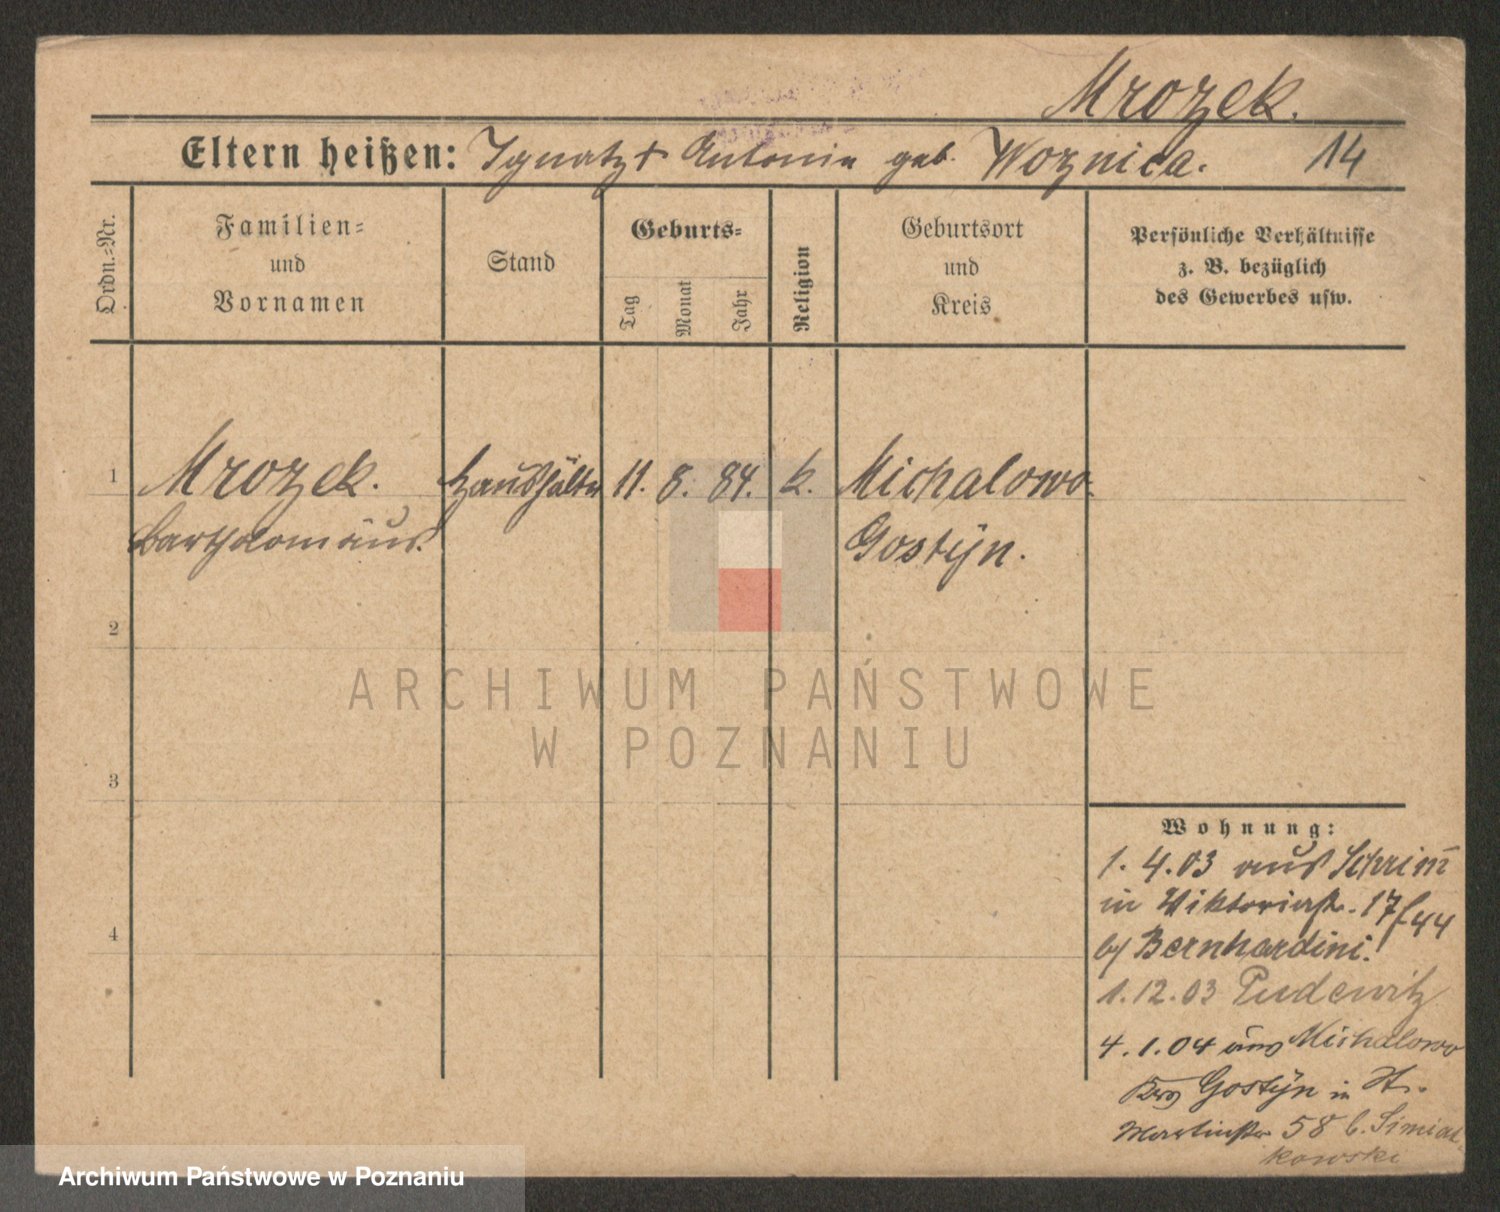 Mrozek.
Eltern heißen: Ignatz + Antonie geb. Woznica. 14
Ordn.=Nr.
Familien=
und
Vornamen
Stand
Geburts=
Tag
Monat
Jahr
Religion
Geburtsort
und
Kreis
Persönliche Verhältnisse
z. B. bezüglich
des Gewerbes usw.
1 Mrozek. Haushälter 11. 8. 84. k. Michalowo
Bartholomäus. Gostÿn.
2
3
4
Wohnung:
1. 4. 03 aus Schrim̄
in Viktoriastr. 17/44
b/ Bernhardini.
1. 12. 03 Pudewitz
4. 1. 04 aus Michalowo
Krs Gostÿn in St.
Martinstr 58 b. Simiat-
kowski
ARCHIWUM PAŃSTWOWE
W POZNANIU
Archiwum Państwowe w Poznaniu